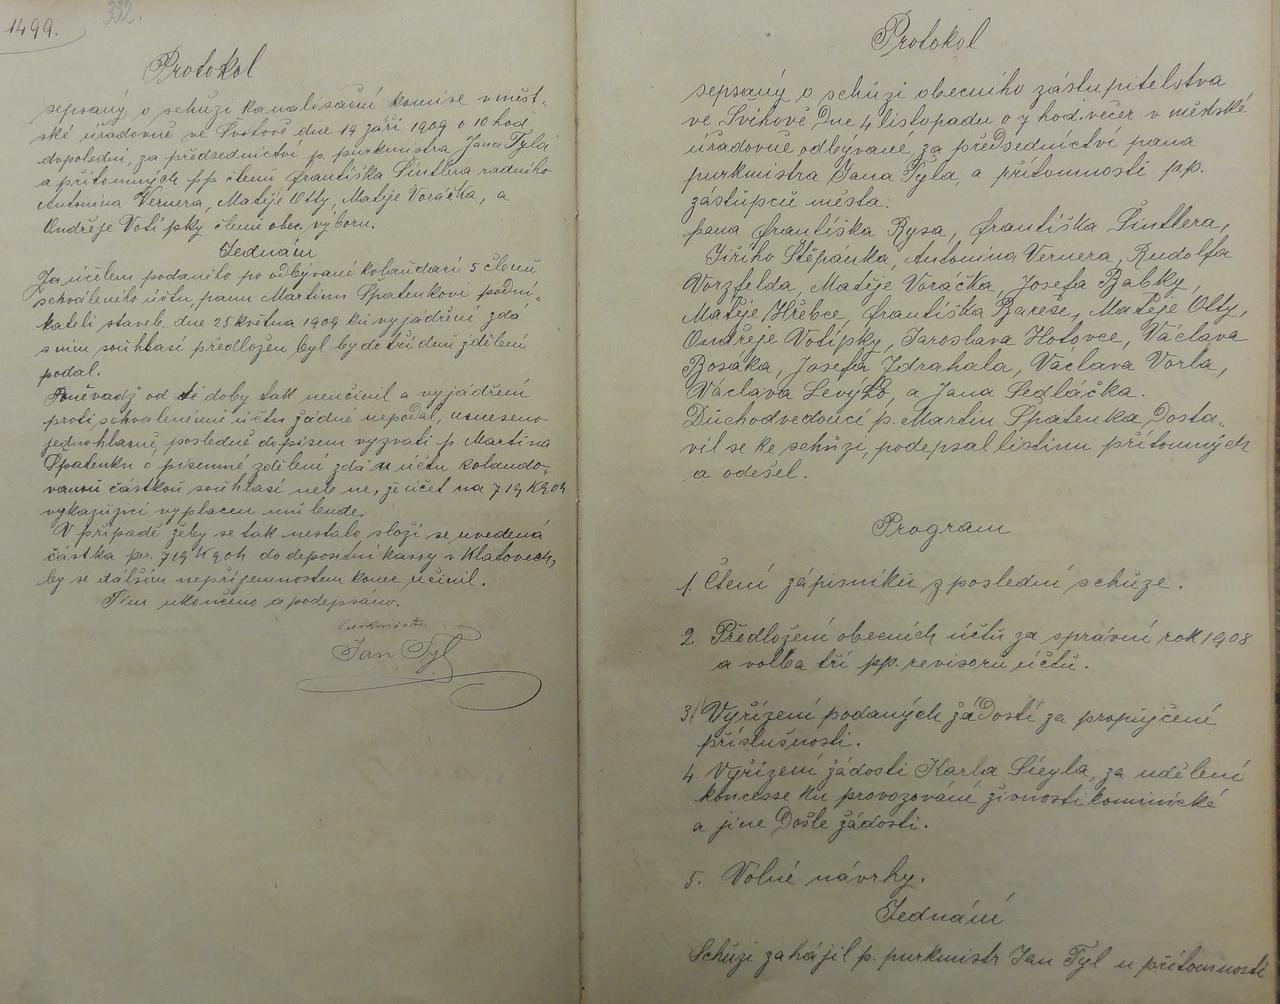 1499.
332.
Protokol
sepsaný o schůzi kanalisační komise v měst-
ské úřadovně ve Švihově dne 19 září 1909 o 10 hod
dopolední, za předsednictví p. purkmistra Jana Tyla
a přítomných pp členů Františka Šintlera radního
Antonína Vernera, Matěje Otty, Matěje Voráčka, a
Ondřeje Votípky členů obec. výboru.
Jednání
Za účelem podaného po odbývané kolaudaci 5 členů
schváleného účtu, panu Martinu Špatenkovi podni-
kateli staveb dne 25 května 1909 ku vyjádření zda
s ním souhlasí předložen byl by do tří dnů sdělení
podal.
Poněvadž od té doby tak neučinil a vyjádření
proti schválenému účtu žádné nepodal, usneseno
jednohlasně, posledně dopisem vyzvati p. Martina
Špatenku o písemné sdělení zda s účtu kolaudo-
vanou částkou souhlasí neb ne, že účet na 719 K 90 h
vykazující vyplacen mu bude.
V případě žeby se tak nestalo složí se uvedená
částka pr. 719 K 90 h do depositní kassy v Klatovech,
by se dalším nepříjemnostem konec učinil.
Tím ukončeno a podepsáno.
purkmistr
Jan Tyl
Protokol
sepsaný o schůzi obecního zástupitelstva
ve Švihově Dne 4 listopadu o 7 hod. večer v městské
úřadovně odbývané, za předsednictví pana
purkmistra Jana Tyla, a přítomnosti pp.
zástupců města:
pana Františka Rysa, Františka Šintlera,
Jiřího Štěpánka, Antonína Vernera, Rudolfa
Vorzfelda, Matěje Voráčka, Josefa Babky,
Matěje Hřebce, Františka Bareše, Matěje Otty,
Ondřeje Votípky, Jaroslava Hotovce, Václava
Bosáka, Josefa Zdrahala, Václava Vorla,
Václava Levého, a Jana Sedláčka.
Důchodvedoucí p. Martin Špatenka Dosta-
vil se ke schůzi, podepsal listinu přítomných
a odešel.
Program
1. Čtení zápisníku z poslední schůze.
2. Předložení obecních účtů za správní rok 1908
a volba tří pp. revisorů účtů.
3. Vyřízení podaných žádostí za propůjčení
příslušnosti.
4. Vyřízení žádosti Karla Siegla, za udělení
koncesse ku provozování živnosti kominické
a jiné Došlé žádosti.
5. Volné návrhy.
Jednání
Schůzi zahájil p. purkmistr Jan Tyl u přítomnosti